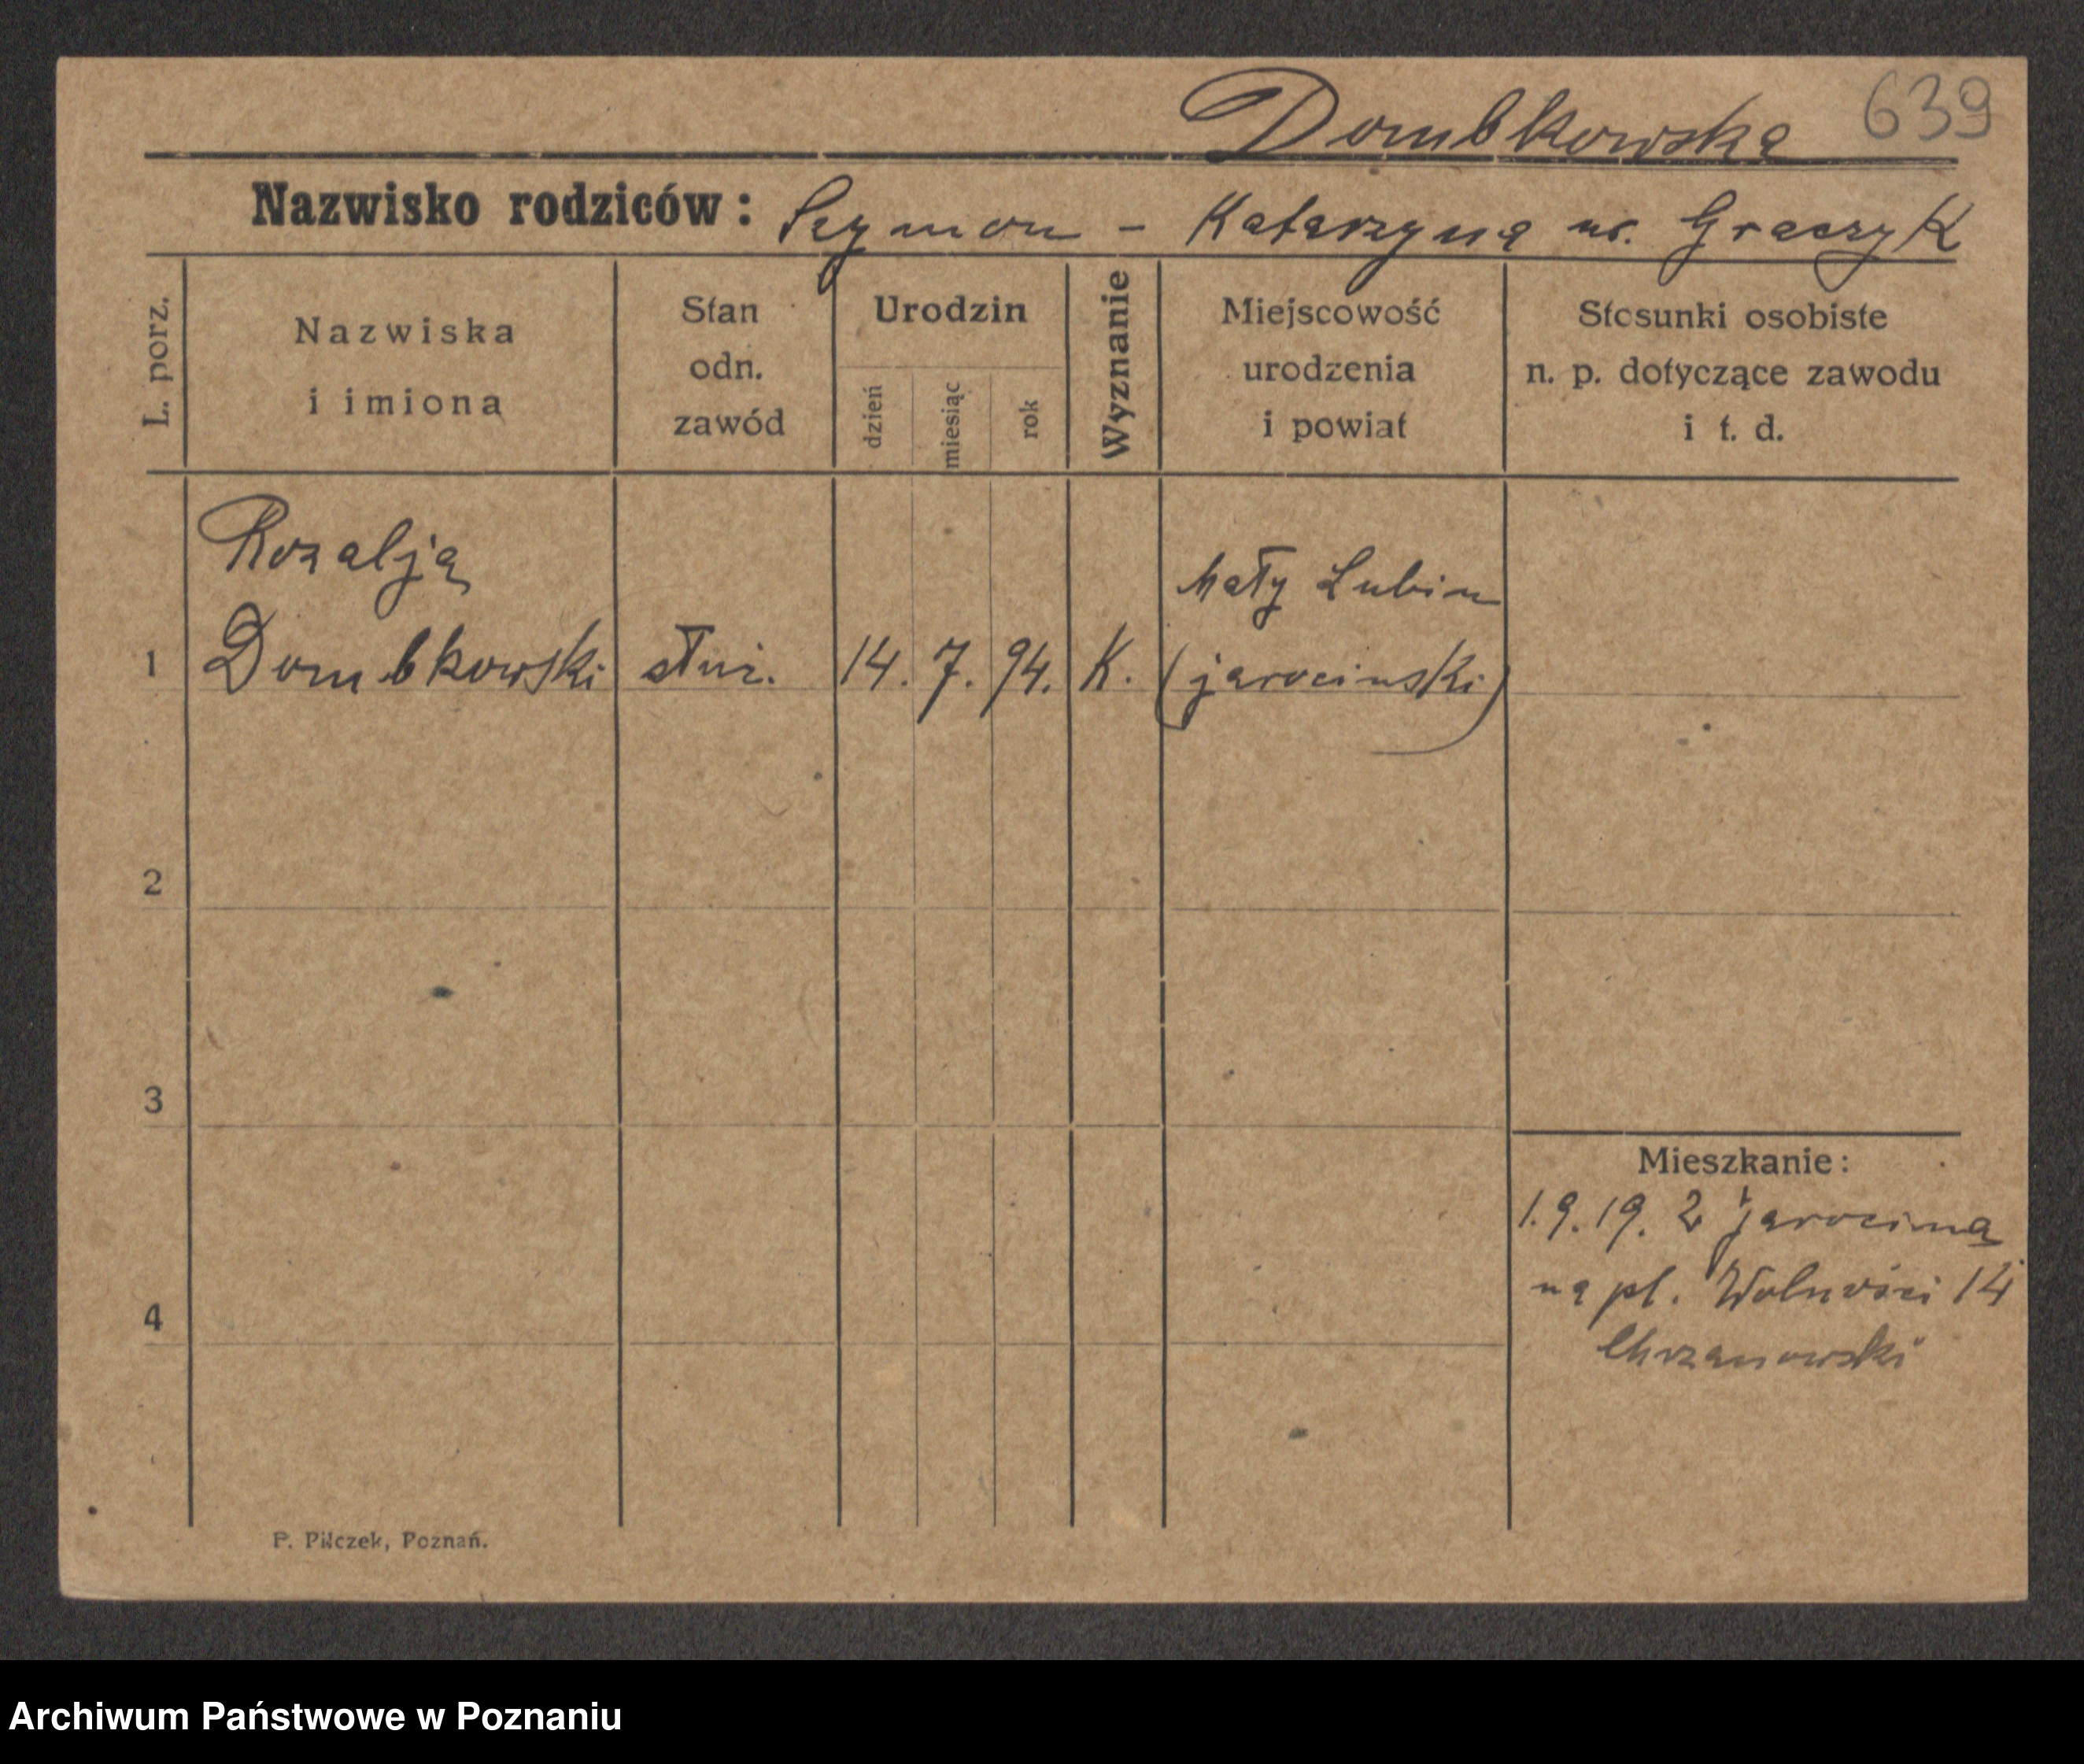 Dombkowska 639
Nazwisko rodziców: Szymon - Katarzyna ur. Graczyk
L. porz.
Nazwiska
i imiona
Stan
odn.
zawód
Urodzin
dzień
miesiąc
rok
Wyznanie
Miejscowość
urodzenia
i powiat
Stosunki osobiste
n. p. dotyczące zawodu
i t. d.
Rozalja
Mały Lubin
1 Dombkowski służ. 14. 7. 94. K. (jarocinski)
2
3
Mieszkanie:
1.9.19. z Jarocina
na pl. Wolności 14
4
Chrzanowski
P. Pilczek, Poznań.
Archiwum Państwowe w Poznaniu